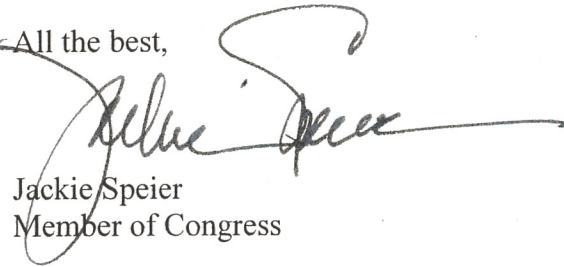 All the best,
Jackie Speier
Jackie Speier
Member of Congress